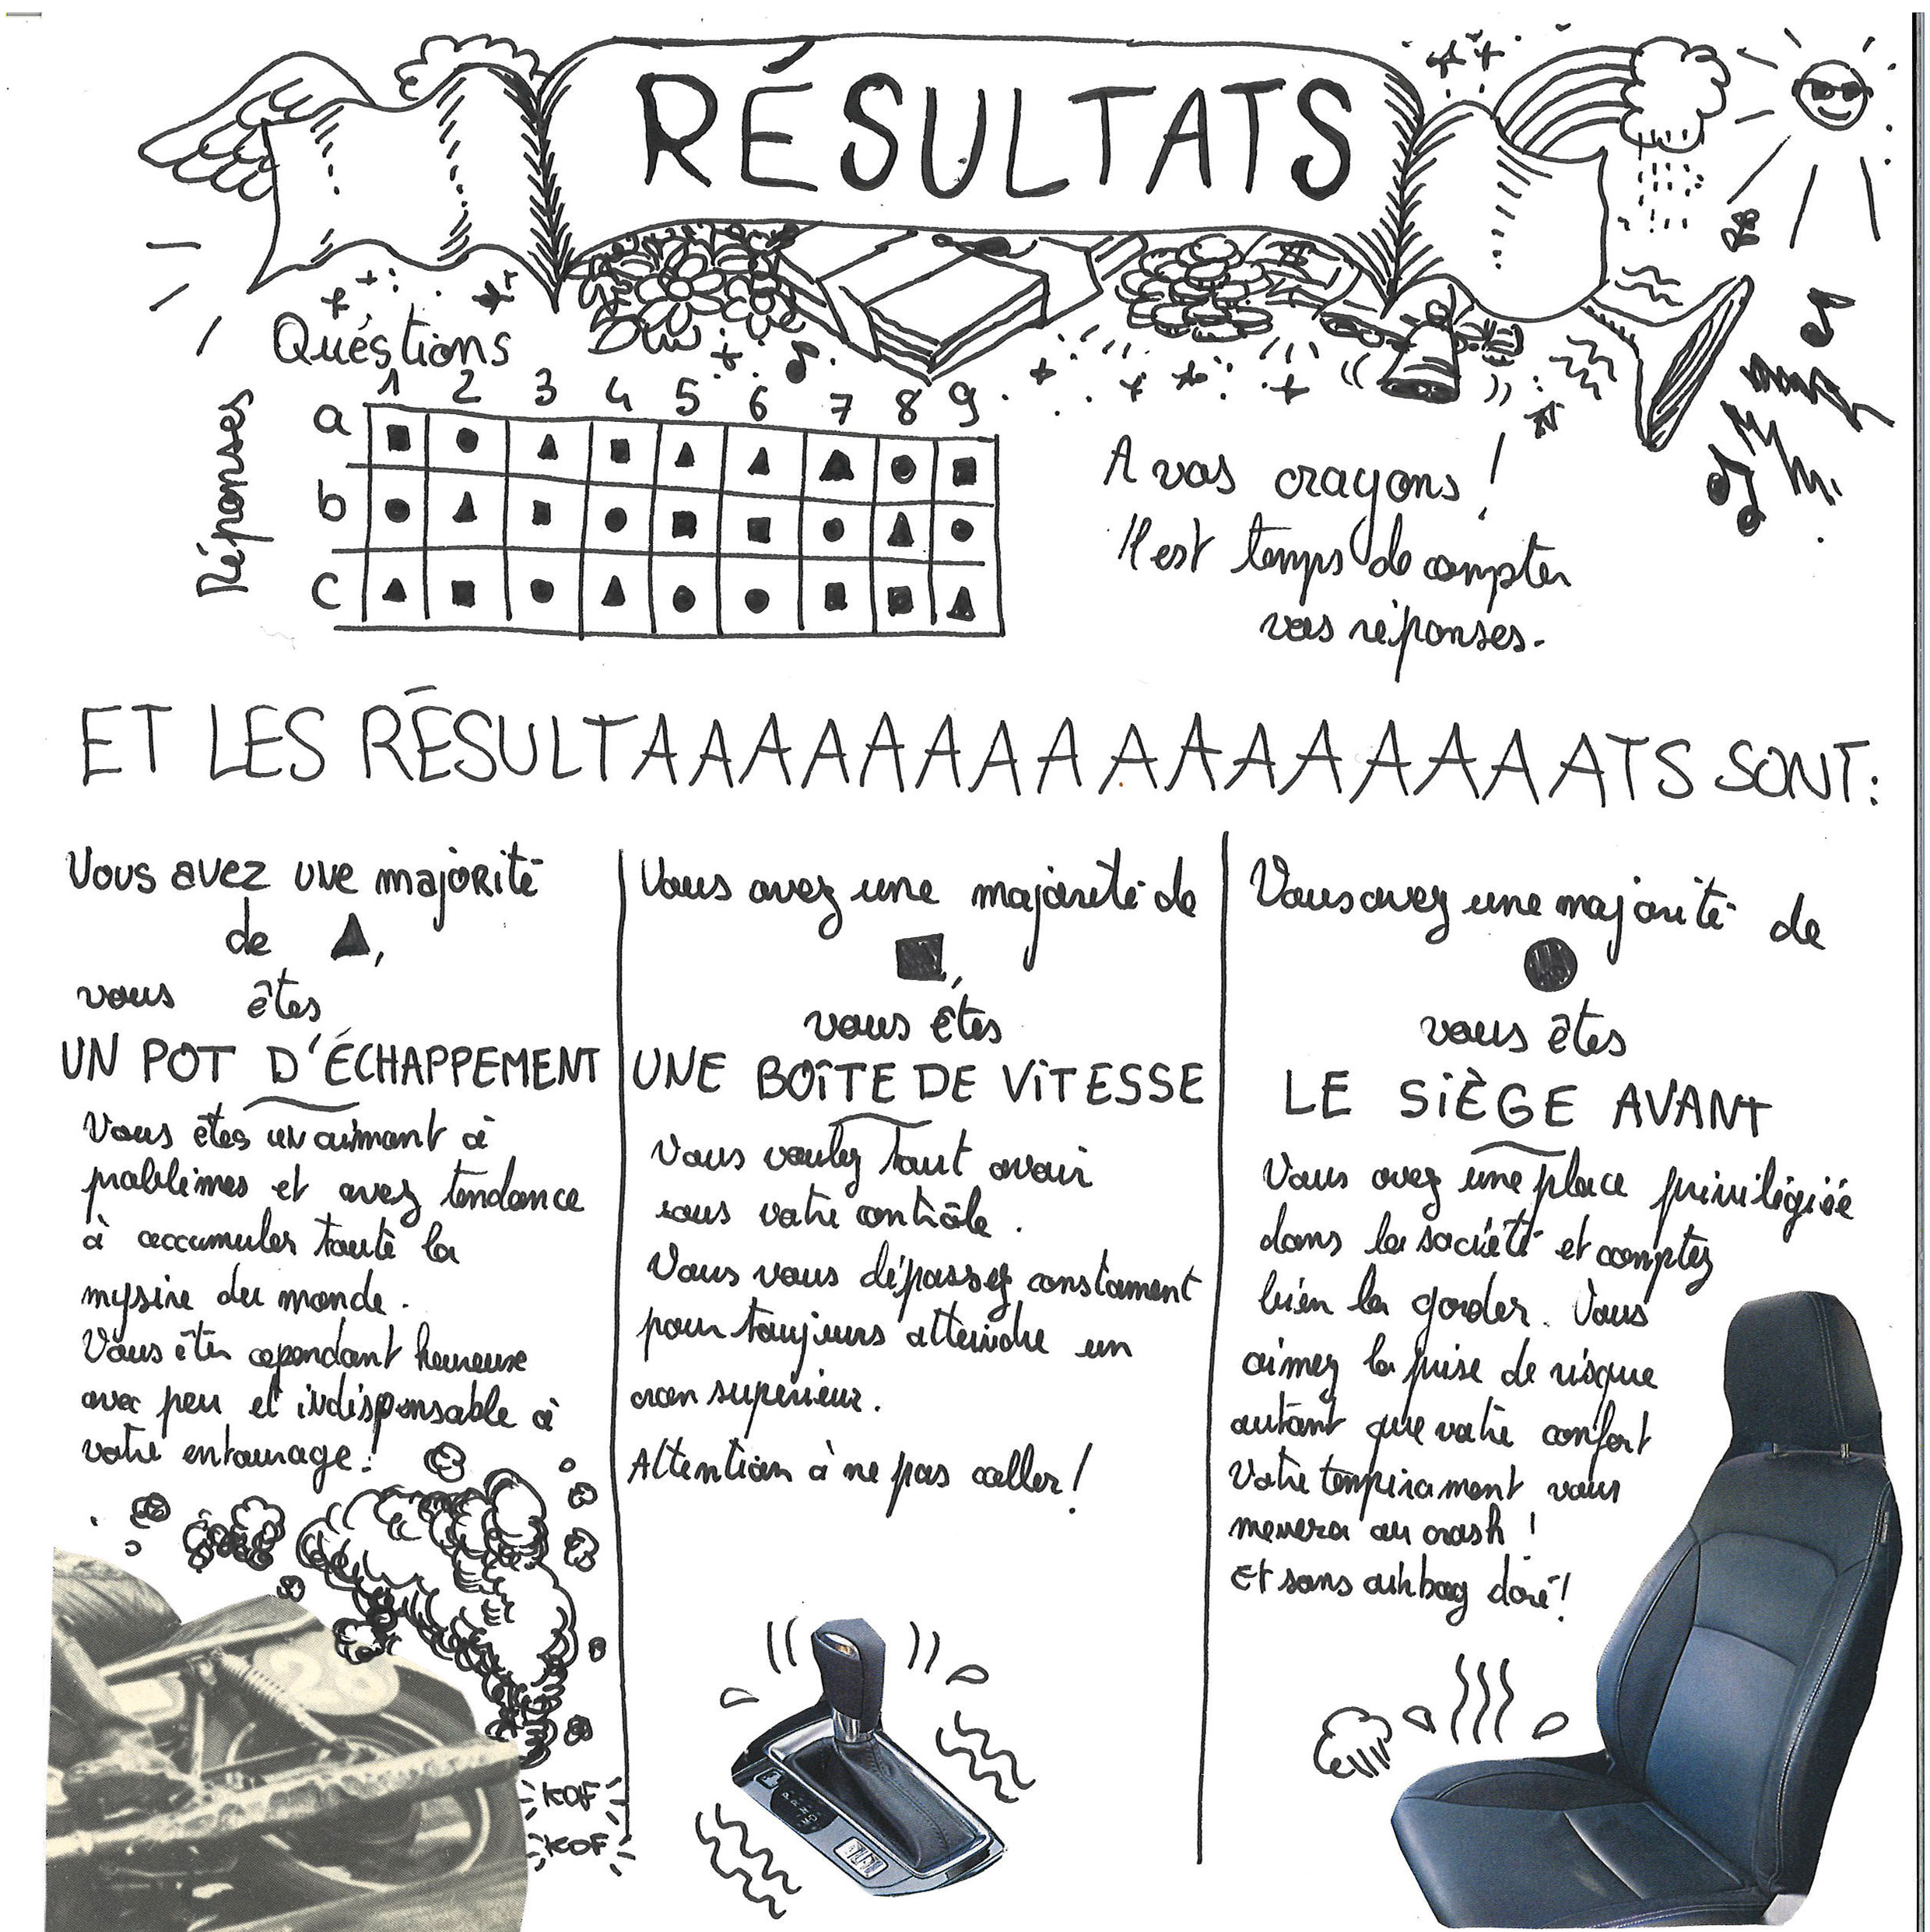 RÉSULTATS
Quéstions
1 2 3 4 5 6 7 8 9
Réponses
a
b
c
A vos crayons !
Il est temps de compter
vos réponses.
ET LES RÉSULTAAAAAAAAAAAAAAAATS SONT:
Vous avez une majorité
de ▲,
vous êtes
UN POT D'ÉCHAPPEMENT
Vous êtes un aimant à
problèmes et avez tendance
à accumuler toute la
mysère du monde.
Vous êtes cependant heureuse
avec peu et indispensable à
votre entourage !
KOF
KOF
Vous avez une majorité de
■,
vous êtes
UNE BOÎTE DE VITESSE
Vous voulez tout avoir
sous votre contrôle.
Vous vous dépassez constament
pour toujours atteindre un
cran supérieur.
Attention à ne pas caller !
Vous avez une majorité de
●
vous êtes
LE SIÈGE AVANT
Vous avez une place privilégiée
dans la société et comptez
bien la garder. Vous
aimez la prise de risque
autant que votre confort
Votre tempérament vous
menera au crash !
Et sans doré !